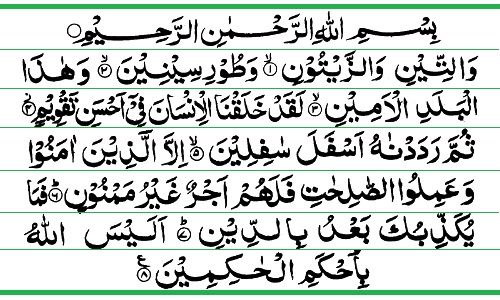 بِسْمِ اللهِ الرَّحْمٰنِ الرَّحِيْمِ
وَالتِّيْنِ وَالزَّيْتُوْنِ ۙ۱ وَطُوْرِ سِيْنِيْنَ ۙ۲ وَهٰذَا
الْبَلَدِ الْاَمِيْنِ ۙ۳ لَقَدْ خَلَقْنَا الْاِنْسَانَ فِيْٓ اَحْسَنِ تَقْوِيْمٍ ۴
ثُمَّ رَدَدْنٰهُ اَسْفَلَ سٰفِلِيْنَ ۙ۵ اِلَّا الَّذِيْنَ اٰمَنُوْا
وَعَمِلُوا الصّٰلِحٰتِ فَلَهُمْ اَجْرٌ غَيْرُ مَمْنُوْنٍ ؕ۶ فَمَا
يُكَذِّبُكَ بَعْدُ بِالدِّيْنِ ؕ۷ اَلَيْسَ اللهُ
بِاَحْكَمِ الْحٰكِمِيْنَ ۸ ع